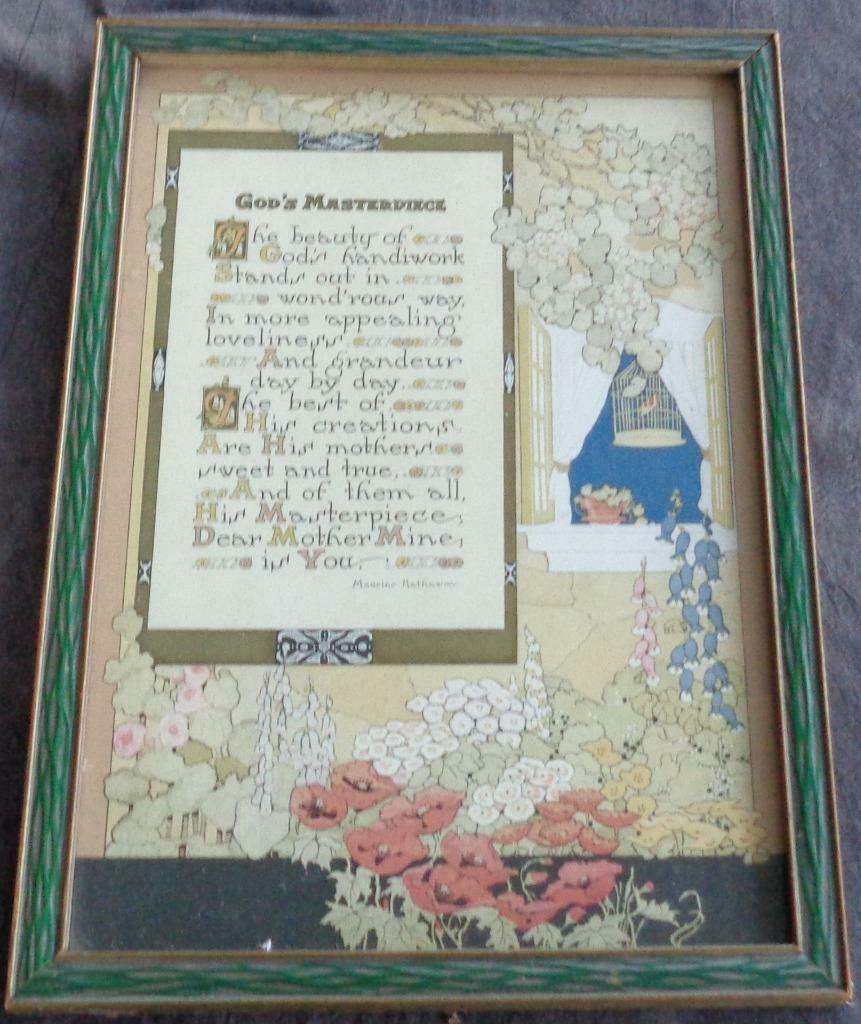 God's Masterpiece
The beauty of
God's handiwork
Stands out in
wond'rous way,
In more appealing
loveliness
And grandeur
day by day.
The best of
His creations
Are His mothers
sweet and true,
And of them all,
His Masterpiece,
Dear Mother Mine,
is You.
Maurine Hathaway